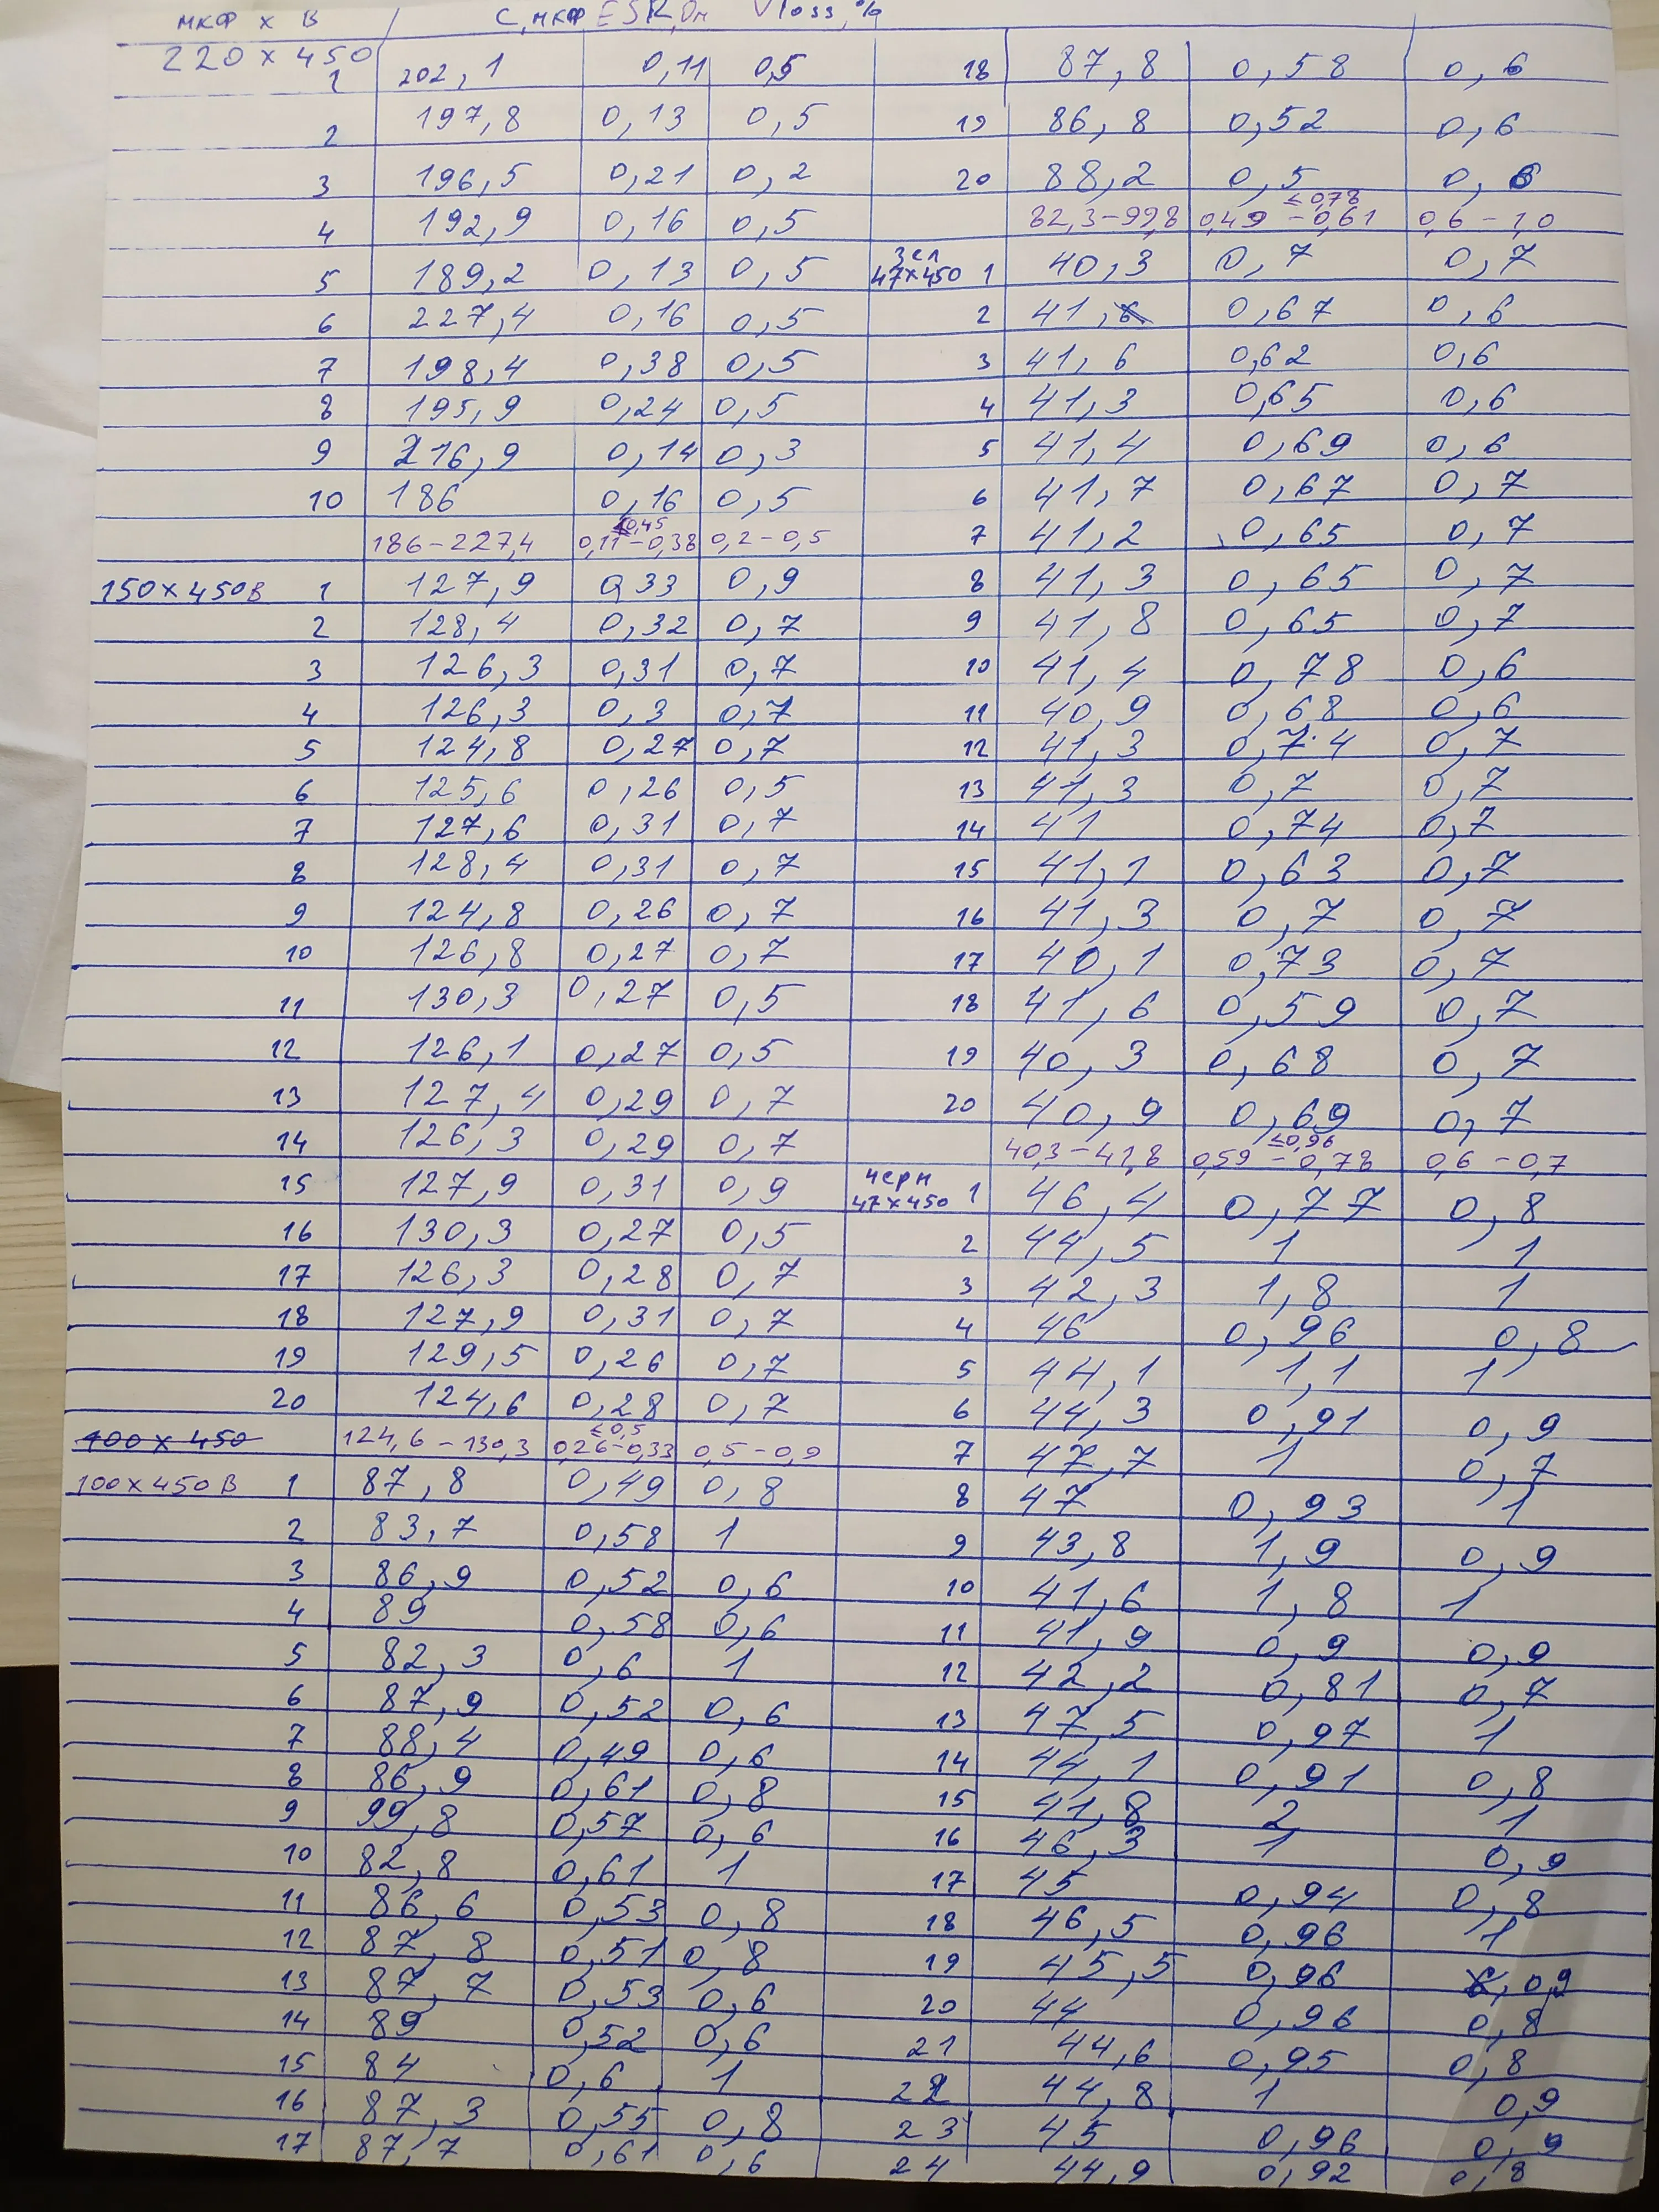 мкФ х В / С, мкФ ESR, Ом Vloss, %
220 х 450
1 202,1 0,11 0,5
2 197,8 0,13 0,5
3 196,5 0,21 0,2
4 192,9 0,16 0,5
5 189,2 0,13 0,5
6 227,4 0,16 0,5
7 198,4 0,38 0,5
8 195,9 0,24 0,5
9 216,9 0,14 0,3
10 186 0,16 0,5
≤0,45
186-227,4 0,11-0,38 0,2-0,5
150 х 450В 1 127,9 0,33 0,9
2 128,4 0,32 0,7
3 126,3 0,31 0,7
4 126,3 0,3 0,7
5 124,8 0,27 0,7
6 125,6 0,26 0,5
7 127,6 0,31 0,7
8 128,4 0,31 0,7
9 124,8 0,26 0,7
10 126,8 0,27 0,7
11 130,3 0,27 0,5
12 126,1 0,27 0,5
13 127,4 0,29 0,7
14 126,3 0,29 0,7
15 127,9 0,31 0,9
16 130,3 0,27 0,5
17 126,3 0,28 0,7
18 127,9 0,31 0,7
19 129,5 0,26 0,7
20 124,6 0,28 0,7
≤0,5
100 х 450 124,6-130,3 0,26-0,33 0,5-0,9
100 х 450 В 1 87,8 0,49 0,8
2 83,7 0,58 1
3 86,9 0,52 0,6
4 89 0,58 0,6
5 82,3 0,6 1
6 87,9 0,52 0,6
7 88,4 0,49 0,6
8 86,9 0,61 0,8
9 99,8 0,57 0,6
10 82,8 0,61 1
11 86,6 0,53 0,8
12 87,8 0,51 0,8
13 87,7 0,53 0,6
14 89 0,52 0,6
15 84 0,6 1
16 87,3 0,55 0,8
17 87,7 0,61 0,6
18 87,8 0,58 0,6
19 86,8 0,52 0,6
20 88,2 0,5 0,6
≤0,78
82,3-99,8 0,49-0,61 0,6-1,0
зел
47х450 1 40,3 0,7 0,7
2 41,6 0,67 0,6
3 41,6 0,62 0,6
4 41,3 0,65 0,6
5 41,4 0,69 0,6
6 41,7 0,67 0,7
7 41,2 0,65 0,7
8 41,3 0,65 0,7
9 41,8 0,65 0,7
10 41,4 0,78 0,6
11 40,9 0,68 0,6
12 41,3 0,74 0,7
13 41,3 0,7 0,7
14 41 0,74 0,7
15 41,1 0,63 0,7
16 41,3 0,7 0,7
17 40,1 0,73 0,7
18 41,6 0,59 0,7
19 40,3 0,68 0,7
20 40,9 0,69 0,7
≤0,96
40,3-41,8 0,59-0,78 0,6-0,7
черн
47х450 1 46,4 0,77 0,8
2 44,5 1 1
3 42,3 1,8 1
4 46 0,96 0,8
5 44,1 1,1 1
6 44,3 0,91 0,9
7 47,7 1 0,7
8 47 0,93 1
9 43,8 1,9 0,9
10 41,6 1,8 1
11 41,9 0,9 0,9
12 42,2 0,81 0,7
13 47,5 0,97 1
14 44,1 0,91 0,8
15 41,8 2 1
16 46,3 1 0,9
17 45 0,94 0,8
18 46,5 0,96 1
19 45,5 0,96 0,9
20 44 0,96 0,8
21 44,6 0,95 0,8
22 44,8 1 0,9
23 45 0,96 0,9
24 44,9 0,92 0,8